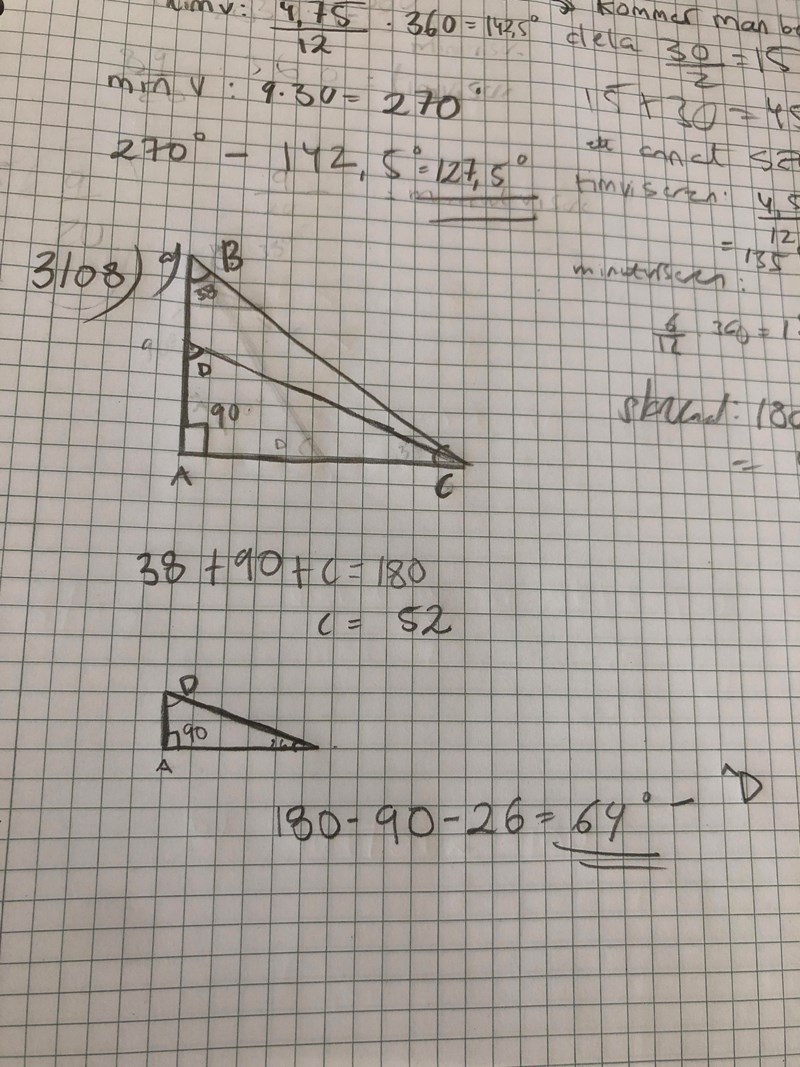 timv: 4,75/12 · 360 = 142,5°
min v: 9·30 = 270°
270° - 142,5° = 127,5°
kommer man
dela 30/2 = 15
15 + 30 = 45
timvisaren: 4,5/12
= 135
minutvisaren:
6/12 360 = 1
180
=
3108)
B
38
D
90
A
C
38 + 90 + C = 180
C = 52
D
90
A
180 - 90 - 26 = 64° - D